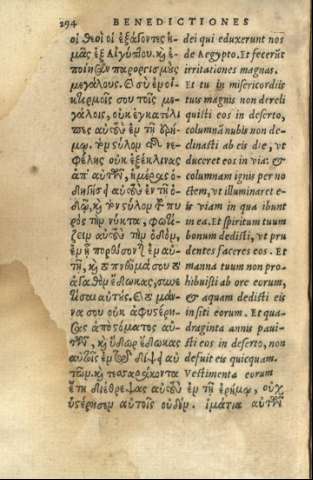 294 BENEDICTIONES
οἱ θεοὶ οἱ ἐξάγοντες ἡ-
μᾶς ἐξ Αἰγύπτου. καὶ ἐ-
ποίησαν παροργισμοὺς
μεγάλους. Καὶ σὺ ἐν οἰ-
κτιρμοῖς σου τοῖς με-
γάλοις, οὐκ ἐγκατέλι-
πες αὐτοὺς ἐν τῇ ἐρή-
μῳ. τὸν στύλον τῆς νε-
φέλης οὐκ ἐξέκλινας
ἀπ' αὐτῶν, ἡμέρας ὁ-
δηγῆσαι αὐτοὺς ἐν τῇ ὁ-
δῷ, καὶ τὸν στύλον τοῦ πυ-
ρὸς τὴν νύκτα, φωτί-
ζειν αὐτοῖς τὴν ὁδὸν,
ἐν ᾗ πορεύσονται ἐν αὐ-
τῇ, καὶ τὸ πνεῦμά σου τὸ
ἀγαθὸν ἔδωκας, συνε-
τίσαι αὐτούς. Καὶ τὸ μάν-
να σου οὐκ ἀφυστέρη-
σας ἀπὸ στόματος αὐ-
τῶν, καὶ ὕδωρ ἔδωκας
αὐτοῖς ἐν τῷ δίψει αὐ-
τῶν. καὶ τεσσαράκοντα
ἔτη διέθρεψας αὐτοὺς ἐν τῇ ἐρήμῳ, οὐχ
ὑστέρησεν αὐτοῖς οὐδέν. ἱμάτια αὐτῶν
dei qui eduxerunt nos
de Aegypto. Et fecerūt
irritationes magnas.
Et tu in misericordiis
tuis magnis non dereli
quisti eos in deserto,
columnā nubis non de-
clinasti ab eis die, vt
duceret eos in via: &
columnam ignis per no
ctem, vt illuminaret e-
is viam in qua ibunt
in ea. Et spiritum tuum
bonum dedisti, vt pru
dentes faceres eos. Et
manna tuum non pro-
hibuisti ab ore eorum,
& aquam dedisti eis
in siti eorum. Et qua-
draginta annis paui-
sti eos in deserto, non
defuit eis quicquam.
Vestimenta eorum